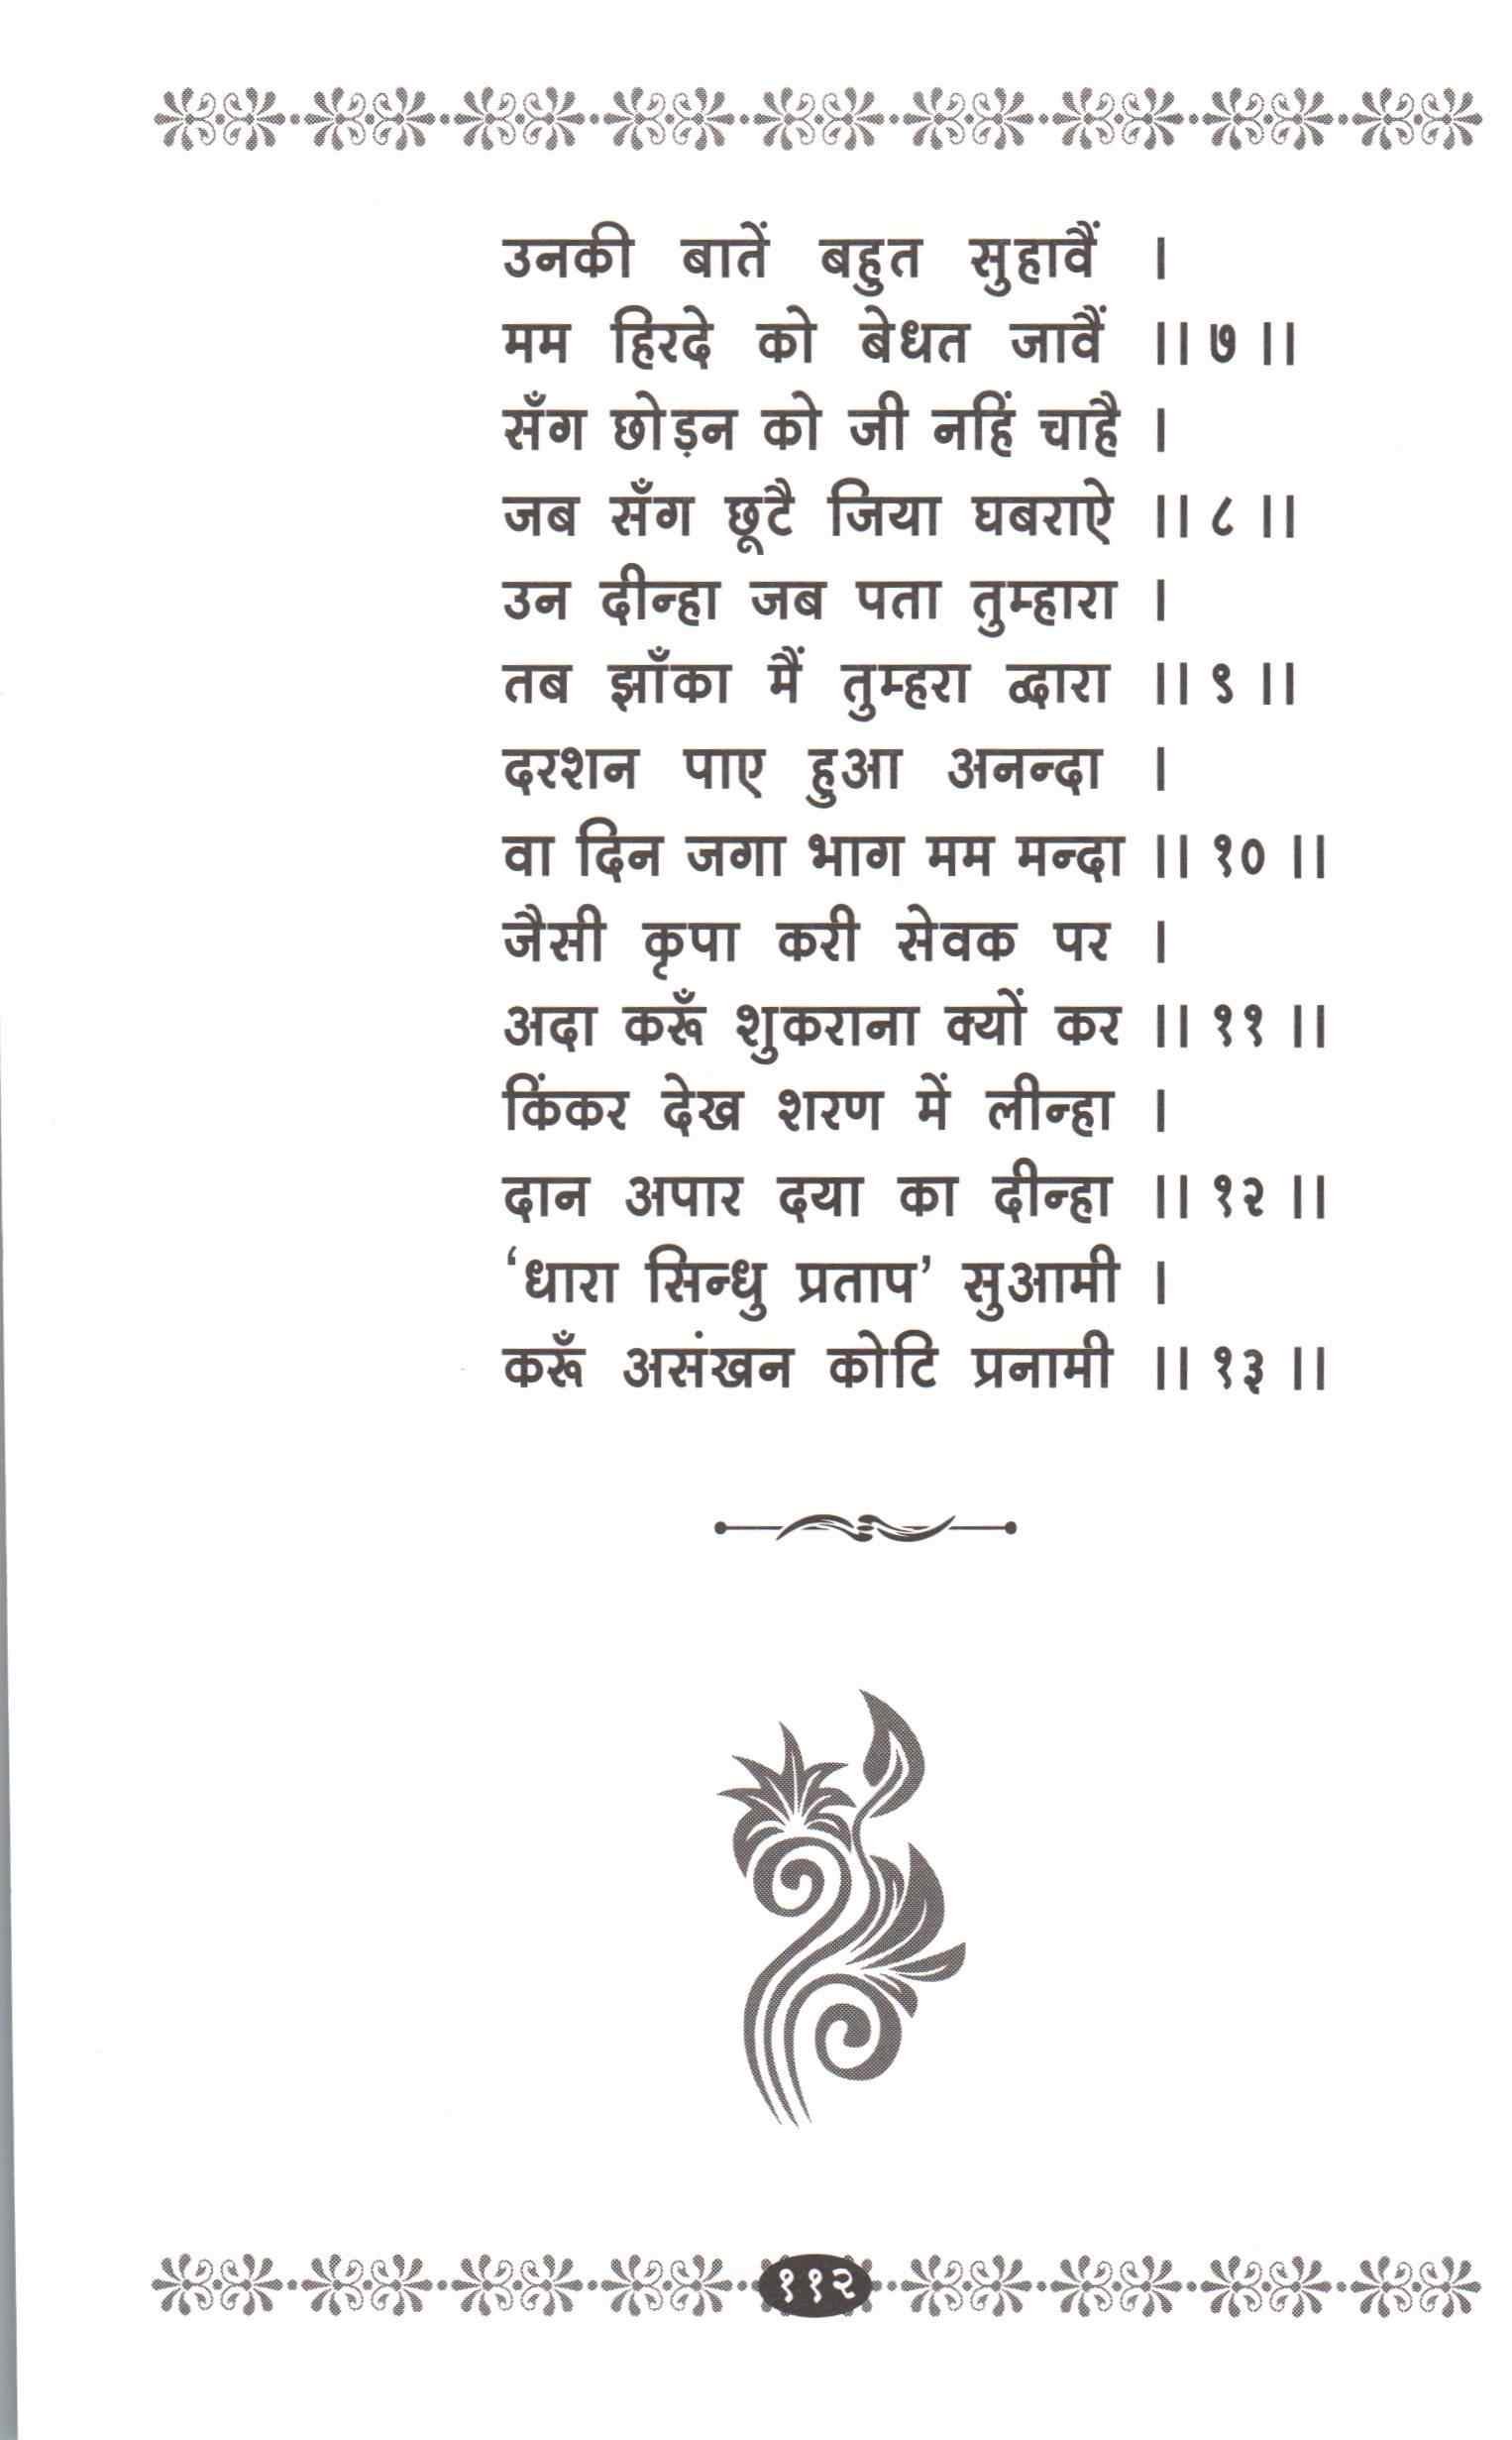 उनकी बातें बहुत सुहावैं ।
मम हिरदे को बेधत जावैं ।। ७ ।।
सँग छोड़न को जी नहिं चाहै ।
जब सँग छूटै जिया घबराऐ ।। ८ ।।
उन दीन्हा जब पता तुम्हारा ।
तब झाँका मैं तुम्हरा द्वारा ।। ९ ।।
दरशन पाए हुआ अनन्दा ।
वा दिन जगा भाग मम मन्दा ।। १० ।।
जैसी कृपा करी सेवक पर ।
अदा करूँ शुकराना क्यों कर ।। ११ ।।
किंकर देख शरण में लीन्हा ।
दान अपार दया का दीन्हा ।। १२ ।।
‘धारा सिन्धु प्रताप’ सुआमी ।
करूँ असंखन कोटि प्रनामी ।। १३ ।।
११२